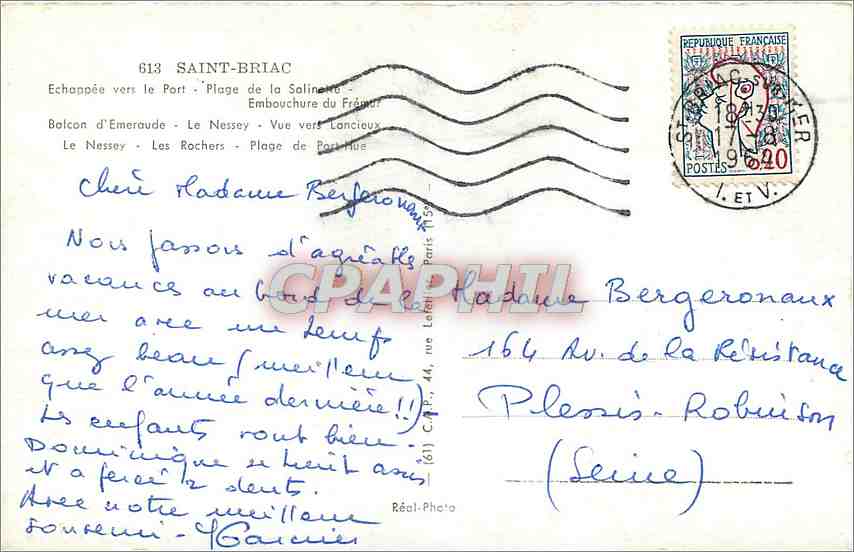 613 SAINT-BRIAC
Echappée vers le Port - Plage de la Salinette -
Embouchure du Frémur
Balcon d'Emeraude - Le Nessey - Vue vers Lancieux
Le Nessey - Les Rochers - Plage de Port-Hue
Chère Madame Bergeronaux
Nous passons d'agréables
vacances au bord de la
mer avec un temps
assez beau (meilleur
que l'année dernière!!)
Les enfants vont bien.
Dominique se tient assis
et a percé 2 dents.
Avec notre meilleur
souvenir - Garnier
(61) C.A.P., 44, rue Letellier, Paris (15e)
Réal-Photo
REPUBLIQUE FRANÇAISE
POSTES 0,20
ST-BRIAC-SUR-MER
18H30
17-8
196
I. ET V.
Madame Bergeronaux
164 Av. de la Résistance
Plessis-Robinson
(Seine)
CPAPHIL